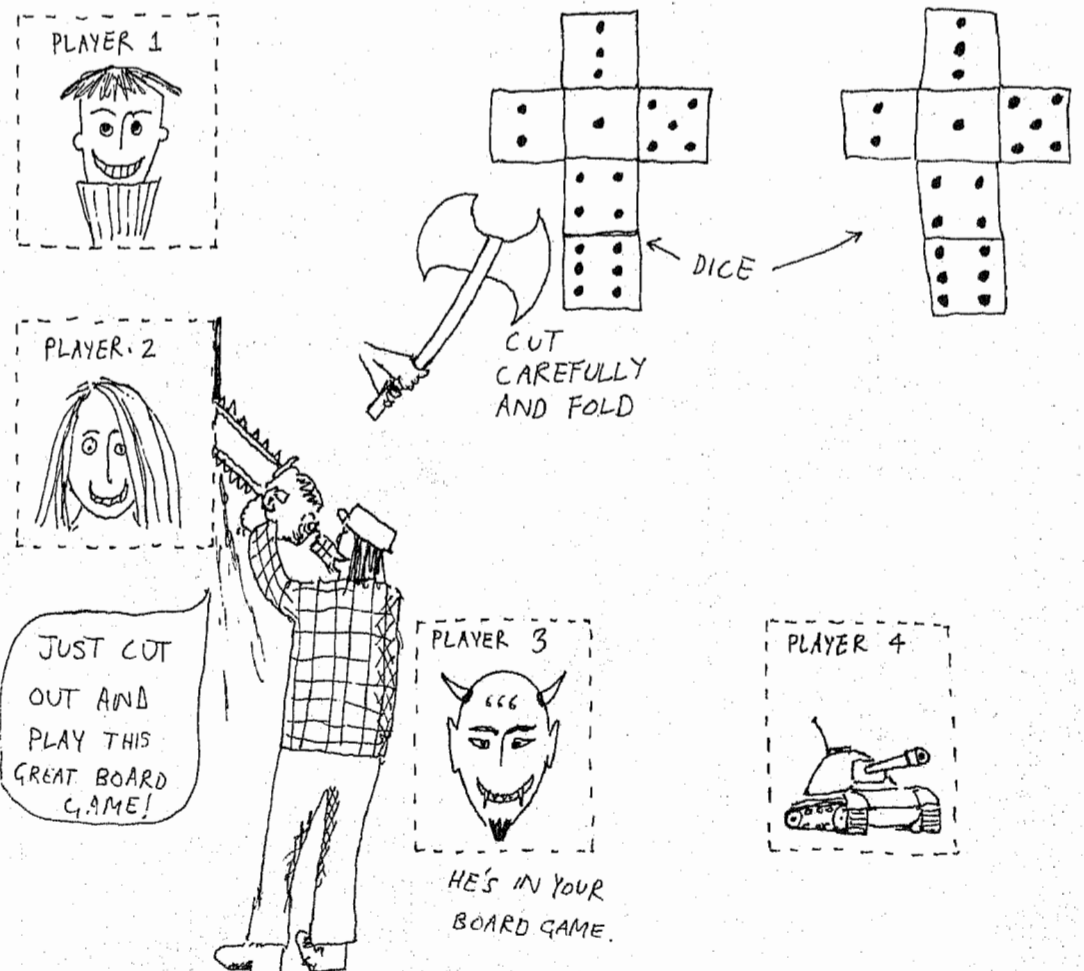 PLAYER 1
DICE
CUT
CAREFULLY
AND FOLD
PLAYER. 2
JUST CUT
OUT AND
PLAY THIS
GREAT BOARD
GAME!
PLAYER 3
666
HE'S IN YOUR
BOARD GAME.
PLAYER 4